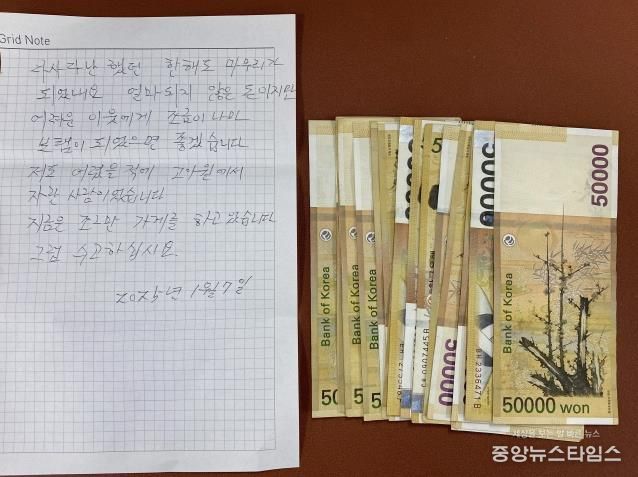 Grid Note
다사다난 했던 한해도 마무리가
되었내요 얼마되지 않은 돈이지만
어려운 이웃에게 조금이나마
보탬이 되었으면 좋겠습니다
저도 어렸을적에 고아원에서
자란 사람이었습니다
지금은 조그만 가게를 하고 있습니다
그럼 수고하십시요.
2025년 1월 7일
Bank of Korea
Bank of Korea
Bank of Korea
50000
50000
BH 2336471 B
50000
Bank of Korea
50000 won
세상을 보는 앞 바른 뉴스
중앙뉴스타임스